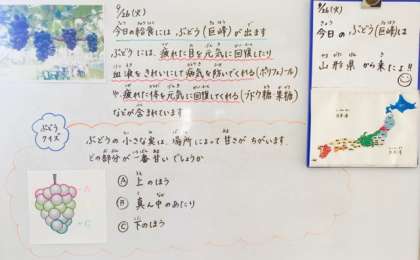 9/26(火)
今日の給食には ぶどう(巨峰)が出ます
ぶどうには、疲れた目を元気に回復したり
血液をきれいにして病気を防いでくれる(ポリフェノール)
や、疲れた体を元気に回復してくれる(ブドウ糖 果糖)
などが含まれています
ぶどう
クイズ
ぶどうの小さな実は、場所によって甘さがちがいます。
どの部分が一番甘いでしょうか
A 上のほう
B 真ん中のあたり
C 下のほう
9/26(火)
今日のぶどう(巨峰)は
山形県から来たよ!